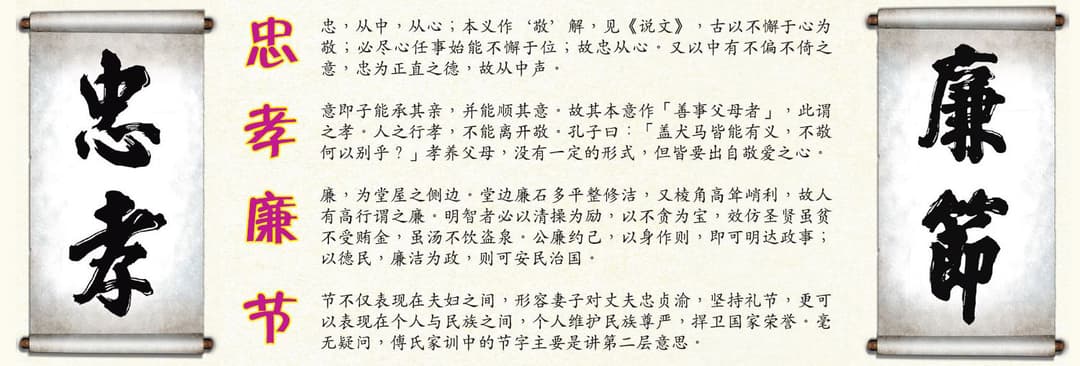 忠孝
忠
忠，从中，从心；本义作‘敬’解，见《说文》，古以不懈于心为
敬；必尽心任事始能不懈于位；故忠从心。又以中有不偏不倚之
意，忠为正直之德，故从中声。
孝
意即子能承其亲，并能顺其意。故其本意作「善事父母者」，此谓
之孝。人之行孝，不能离开敬。孔子曰：「盖犬马皆能有义，不敬
何以别乎？」孝养父母，没有一定的形式，但皆要出自敬爱之心。
廉
廉，为堂屋之侧边。堂边廉石多平整修洁，又棱角高耸峭利，故人
有高行谓之廉。明智者必以清操为励，以不贪为宝，效仿圣贤虽贫
不受贿金，虽汤不饮盗泉。公廉约己，以身作则，即可明达政事；
以德民，廉洁为政，则可安民治国。
节
节不仅表现在夫妇之间，形容妻子对丈夫忠贞渝，坚持礼节，更可
以表现在个人与民族之间，个人维护民族尊严，捍卫国家荣誉。毫
无疑问，傅氏家训中的节字主要是讲第二层意思。
廉節